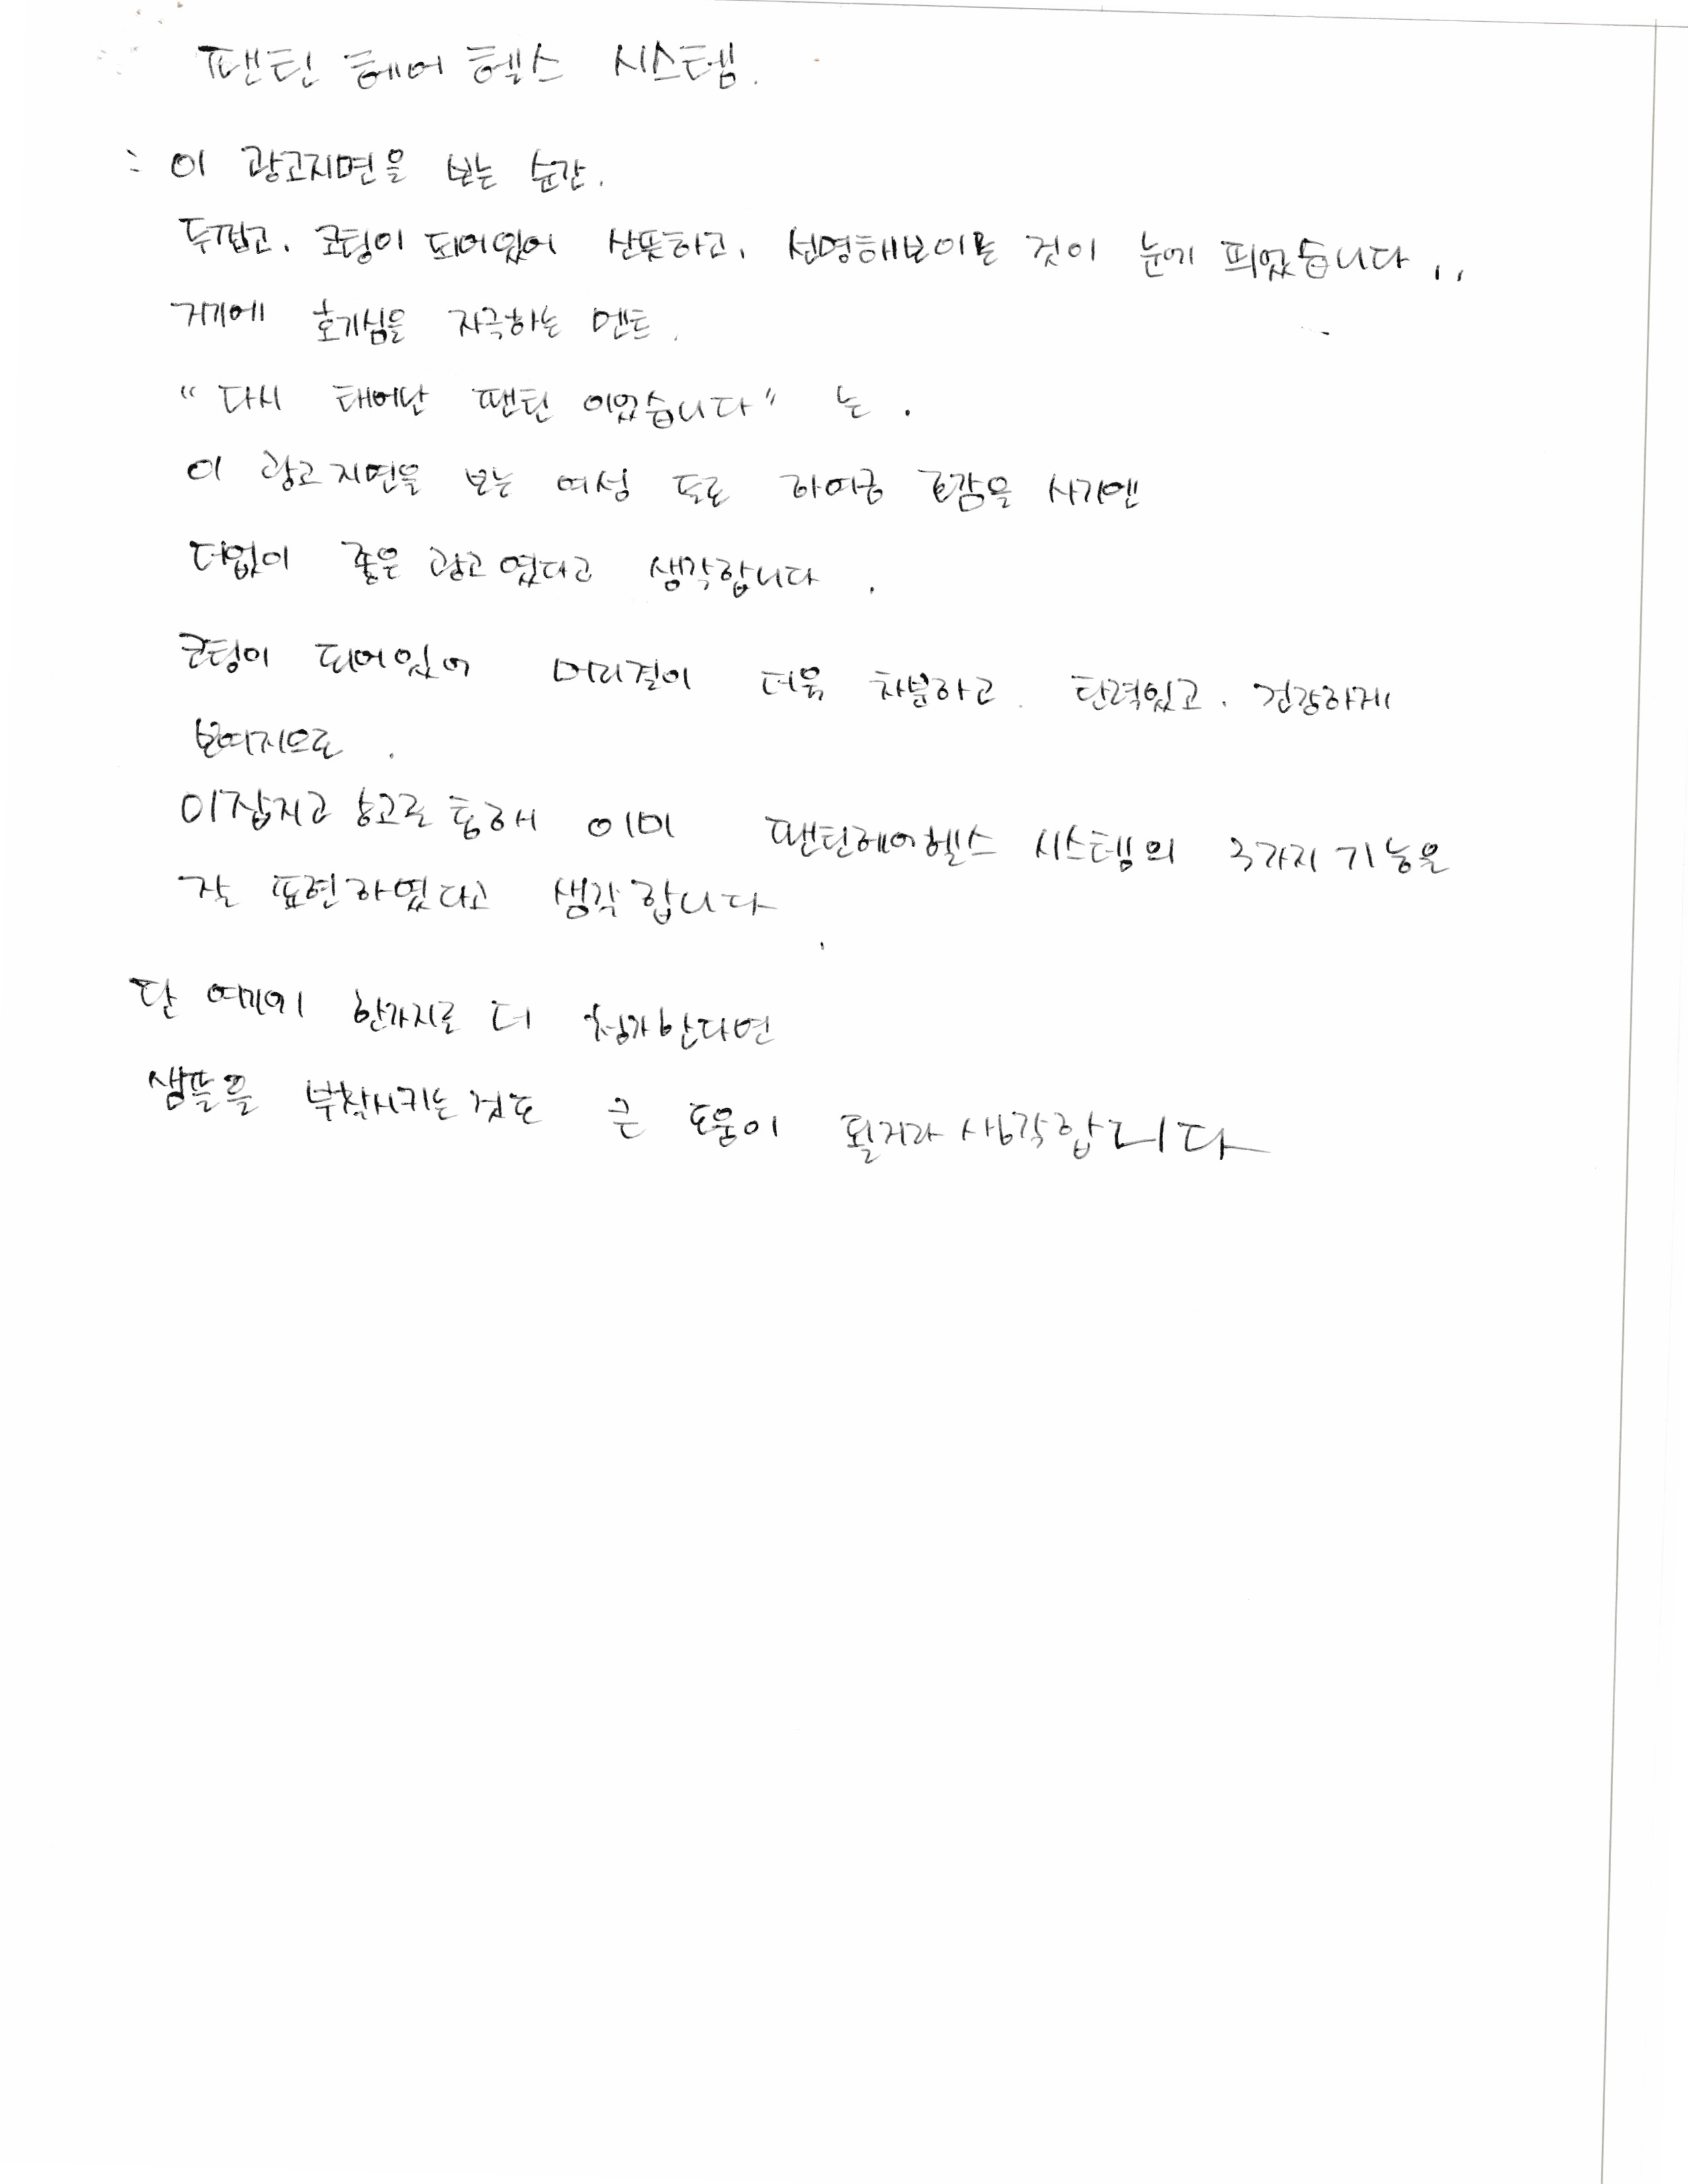 팬틴 헤어 헬스 시스템.
: 이 광고지면을 보는 순간.
두껍고. 코팅이 되어있어 산뜻하고, 선명해보이는 것이 눈에 띄었습니다..
거기에 호기심을 자극하는 멘트.
"다시 태어난 팬틴 이었습니다" 는.
이 광고지면을 보는 여성 들로 하여금 호감을 사기엔
더없이 좋은 광고였다고 생각합니다.
코팅이 되어있어 머리결이 더욱 차분하고. 탄력있고. 건강하게
보여지므로.
이잡지광고를 통해 이미 팬틴헤어헬스 시스템의 3가지 기능을
잘 표현하였다고 생각합니다.
단 여기에 한가지로 더 첨가한다면
샘플을 부착시키는것도 큰 도움이 될거라 생각합니다